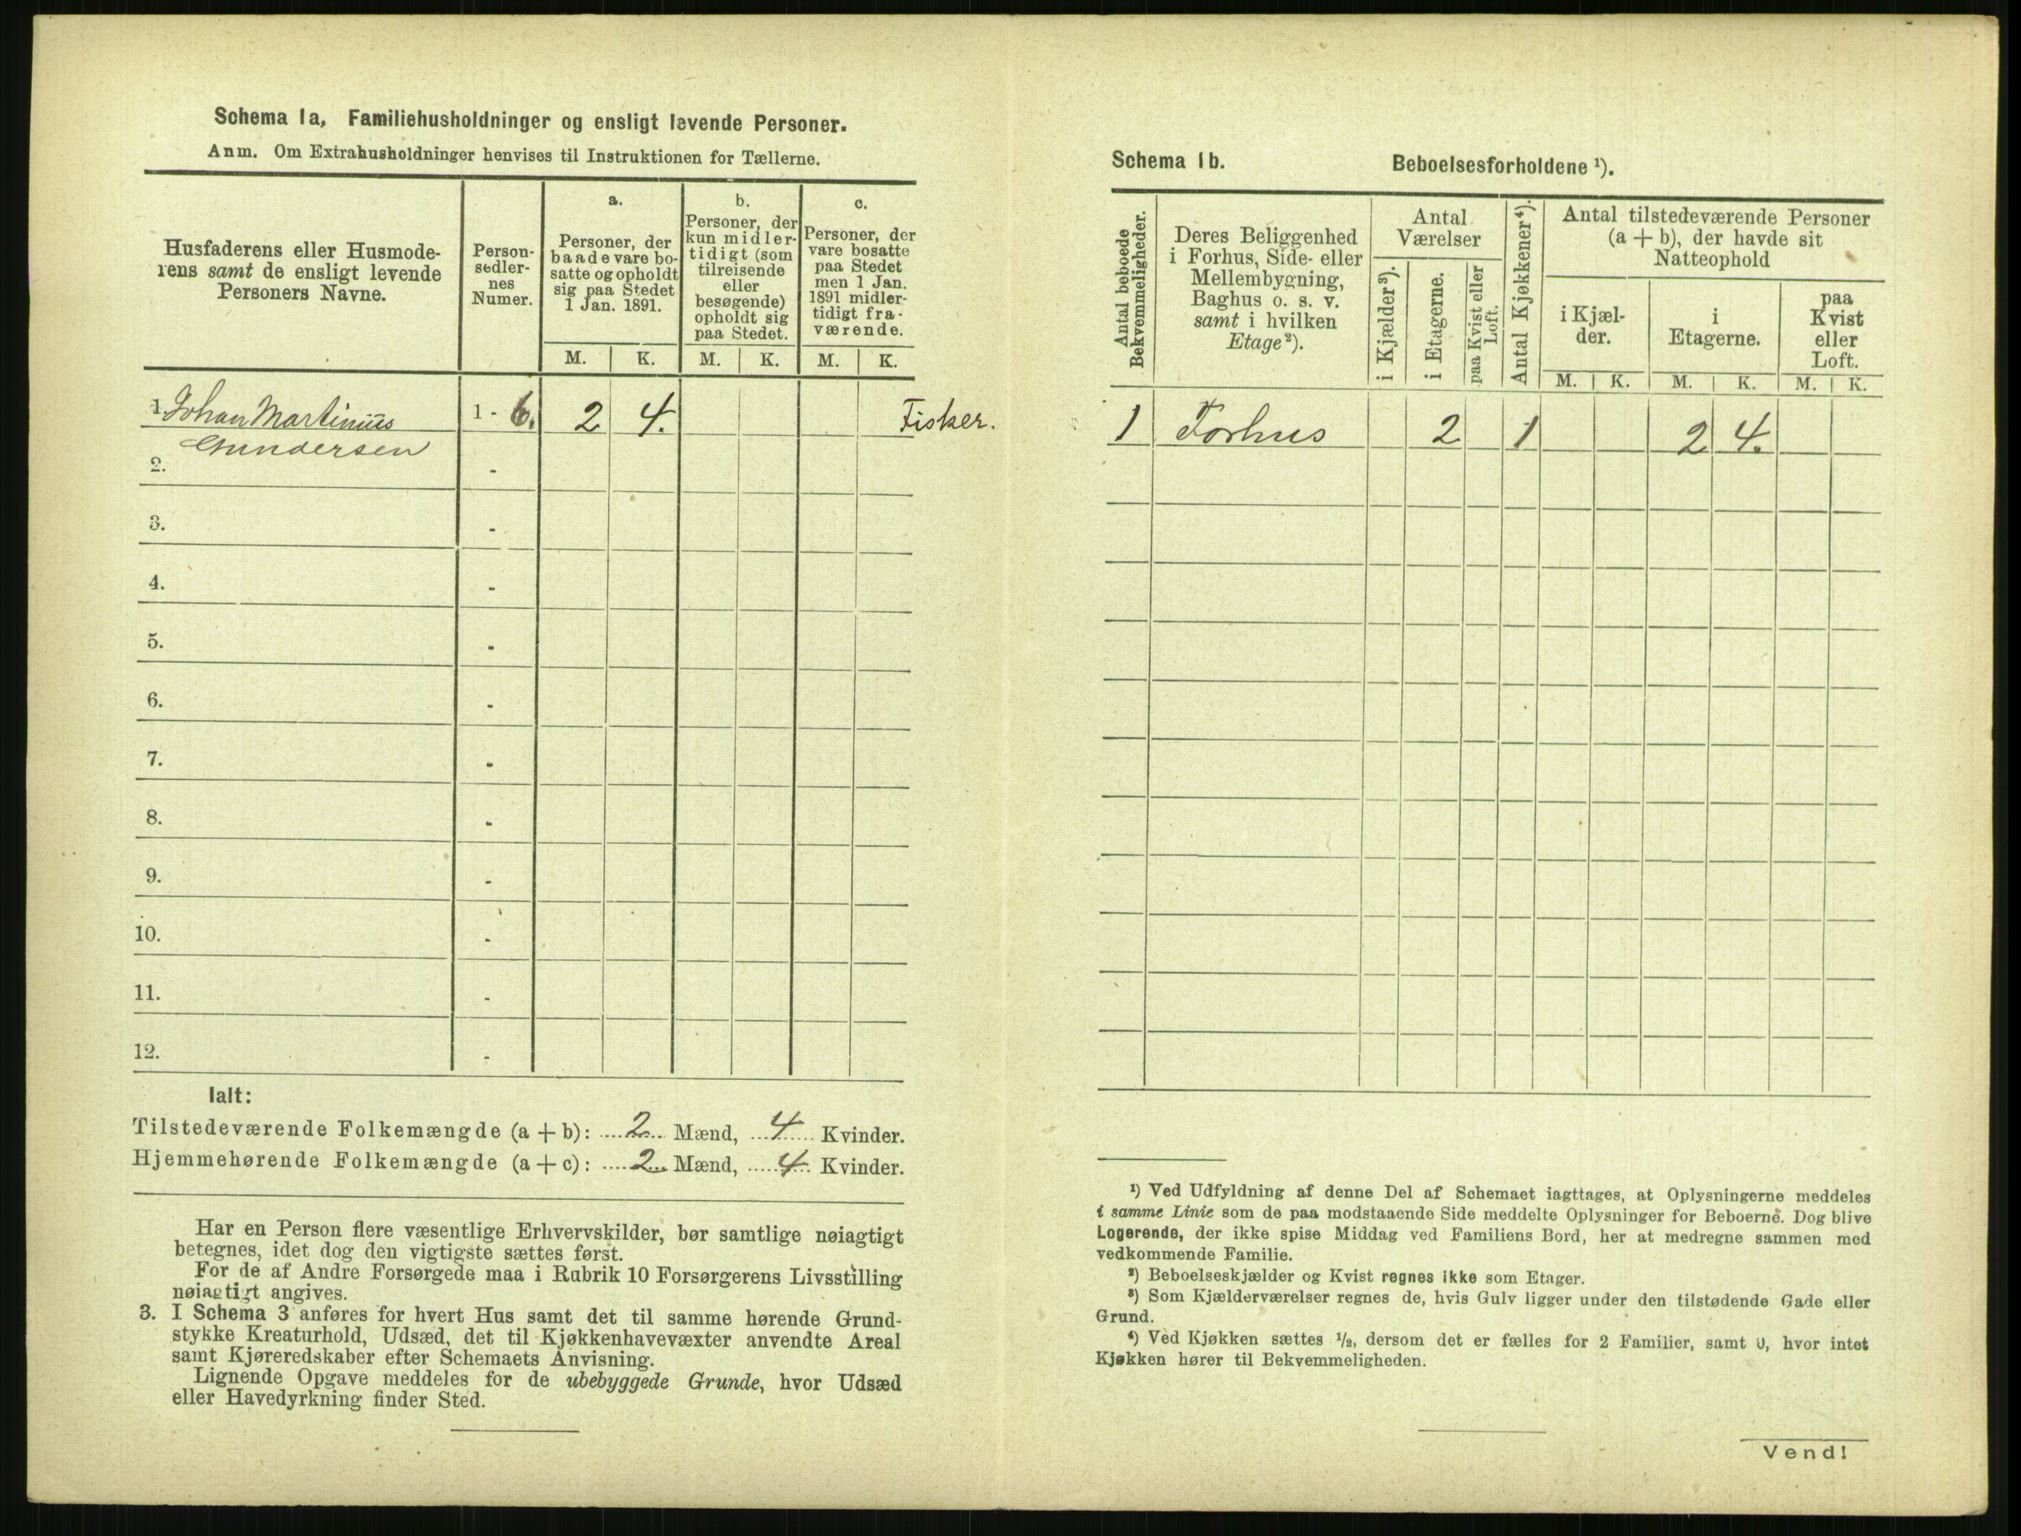 Schema 1a, Familiehusholdninger og ensligt levende Personer.
Anm. Om Extrahusholdninger henvises til Instruktionen for Tællerne.
Husfaderens eller Husmode-
rens samt de ensligt levende
Personers Navne.
Person-
sedler-
nes
Numer.
a.
Personer, der
baade vare bo-
satte og opholdt
sig paa Stedet
1 Jan. 1891.
b.
Personer, der
kun midler-
tidigt (som
tilreisende
eller
besøgende)
opholdt sig
paa Stedet.
c.
Personer, der
vare bosatte
paa Stedet
men 1 Jan.
1891 midler-
tidigt fra-
værende.
M. K. M. K. M. K.
1. Johan Martinius 1 - 6. 2 4. Fisker.
Gundersen
2. -
3. -
4. -
5. -
6. -
7. -
8. -
9. -
10. -
11. -
12. -
Ialt:
Tilstedeværende Folkemængde (a + b): 2 Mænd, 4 Kvinder.
Hjemmehørende Folkemængde (a + c): 2 Mænd, 4 Kvinder.
Har en Person flere væsentlige Erhvervskilder, bør samtlige nøiagtigt
betegnes, idet dog den vigtigste sættes først.
For de af Andre Forsørgede maa i Rubrik 10 Forsørgerens Livsstilling
nøiagtigt angives.
3. I Schema 3 anføres for hvert Hus samt det til samme hørende Grund-
stykke Kreaturhold, Udsæd, det til Kjøkkenhavevæxter anvendte Areal
samt Kjøreredskaber efter Schemaets Anvisning.
Lignende Opgave meddeles for de ubebyggede Grunde, hvor Udsæd
eller Havedyrkning finder Sted.
Schema 1b. Beboelsesforholdene ¹).
Antal beboede
Bekvemmeligheder.
Deres Beliggenhed
i Forhus, Side- eller
Mellembygning,
Baghus o. s. v.
samt i hvilken
Etage²).
Antal
Værelser
i Kjælder³).
i Etagerne.
paa Kvist eller
Loft.
Antal Kjøkkener⁴).
Antal tilstedeværende Personer
(a + b), der havde sit
Natteophold
i Kjæl-
der.
i
Etagerne.
paa
Kvist
eller
Loft.
M. K. M. K. M. K.
1 Forhus 2 1 2 4.
¹) Ved Udfyldning af denne Del af Schemaet iagttages, at Oplysningerne meddeles
i samme Linie som de paa modstaaende Side meddelte Oplysninger for Beboerne. Dog blive
Logerende, der ikke spise Middag ved Familiens Bord, her at medregne sammen med
vedkommende Familie.
²) Beboelseskjælder og Kvist regnes ikke som Etager.
³) Som Kjælderværelser regnes de, hvis Gulv ligger under den tilstødende Gade eller
Grund.
⁴) Ved Kjøkken sættes ¹/₂, dersom det er fælles for 2 Familier, samt 0, hvor intet
Kjøkken hører til Bekvemmeligheden.
Vend!